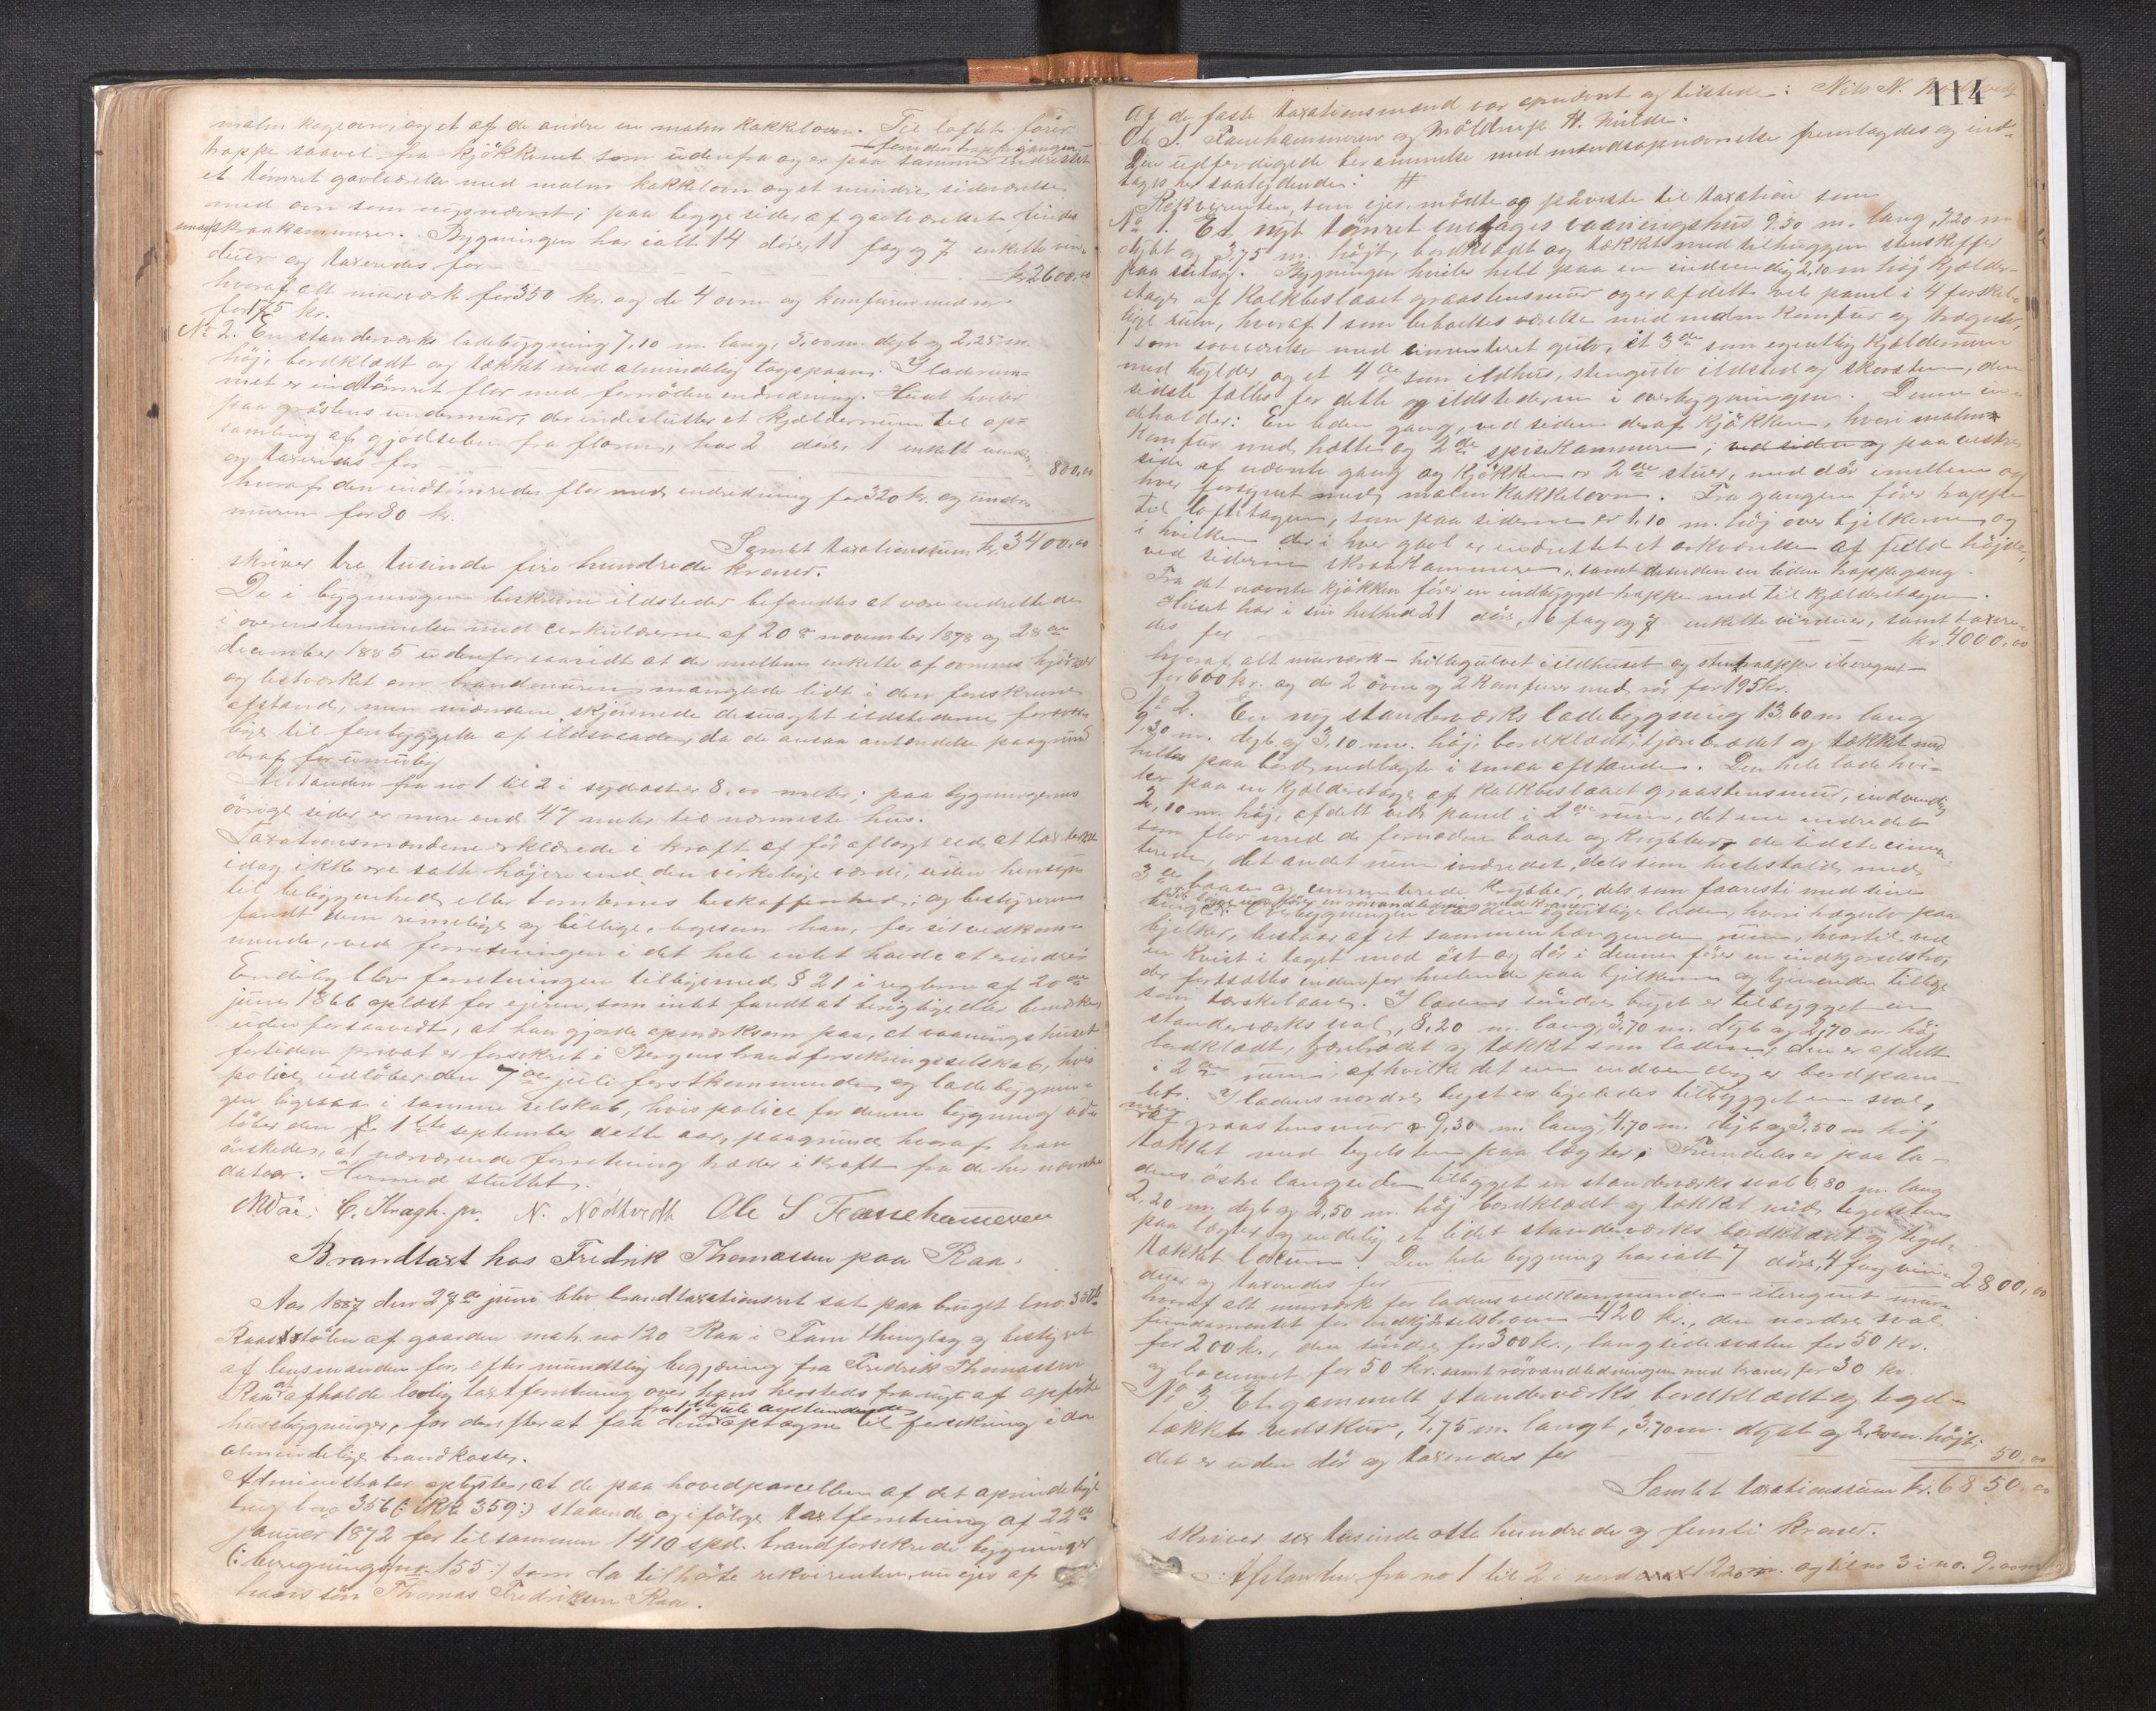 malm kogeovn, og et af de andre en malm kakkelovn. Til loftet fører
trappe saavel fra kjøkkenet som udenfra og er paa samme foruden trappegangen indrettet
et tømret gavlværelse med malm kakkelovn og et mindre sideværelse
med ovn som nysnævnt; paa begge sider af gavlværelset findes
skraakammere. Bygningen har ialt 14 døre, 11 fag og 7 enkelte vin-
duer og taxeredes for kr. 2600,00
hvoraf alt murværk for 350 kr. og de 4 ovne og komfuren med rør
for 175 kr.
No 2. En standerværks ladebygning 7,10 m. lang, 5,00 m. dyb og 2,25 m.
høj, bordklædt og tækket med almindelig tagspaan. I laderum-
met er indtømret flor med fornøden indredning. Huset hviler
paa gråstens undermur, der indeslutter et kjælderrum til op-
samling af gjødselen fra floren, har 2 døre, 1 enkelt vindu
og taxeredes for 800,00
hvoraf den indtømrede flor med indredning for 320 kr. og under-
muren for 80 kr.
Samlet taxationssum kr. 3400,00
skriver tre tusinde fire hundrede kroner.
De i bygningen beskrevne ildsteder befandtes at være indrettede
i overenstemmelse med cirkulærerne af 20de november 1878 og 28de
december 1885 udenforsaavidt at der mellem enkelte af ovnenes hjørner
og listværket om brandmuren manglede lidt i den foreskrevne
afstand, men mændene skjønnede desuagtet ildstederne forsvar-
lige til forebyggelse af ildsvaade, da de ansaa antændelse paagrund
deraf for umulig
Afstanden fra no 1 til 2 i sydost er 8,00 meter; paa bygningernes
øvrige sider er mere end 47 meter til nærmeste hus.
Taxationsmændene erklærede i kraft af før aflagt eed, at taxterne
idag ikke ere satte højere end den virkelige værdi, uden hensyn
til beliggenhed eller tomternes beskaffenhed; og bestyreren
fandt dem rimelige og billige, ligesom han, for sit vedkom-
mende, ved forretningen i det hele intet havde at erindre
Endelig blev forretningen tilligemed § 21 i reglerne af 20de
juni 1866 oplæst for ejeren, som intet fandt at berigtige eller bemærke,
udenforsaavidt, at han gjorde opmærksom paa, at vaaningshuset
fortiden privat er forsikret i Bergens brandforsikringsselskab, hvis
police udløber den 7de juli førstkommende, og ladebygnin-
gen ligesaa i samme selskab, hvis police for denne bygning ud-
løber den 1ste september dette aar, paagrund hvoraf han
ønskede, at nærværende forretning træder i kraft fra de her nævnte
datoer. Hermed sluttet.
C. Kragh. jr. N. Nødtvedt Ole S Fannehammeren
Brandtaxt hos Fredrik Thomassen paa Raa.
Aar 1887 den 27de juni blev brandtaxationsret sat paa bruget lno. 350b
Raastølen af gaarden mat. no 120 Raa i Fane thinglag og bestyret
af lensmanden for, efter mundtlig begjæring fra Fredrik Thomassen
Raa at afholde lovlig taxtforretning over hans hersteds fra nyt af opførte
husebygninger, for derefter at faa dem fra 1ste juli anstundende optagne til forsikring i den
almindelige brandkasse.
Administrator oplyste, at de paa hovedparcellen af det oprindelige
brug lno 356 (: 359:) staaende, og ifølge taxtforretning af 22de
januar 1872 for tilsammen 1410 spd. brandforsikrede bygninger
(: beregningsno. 155:) som da tilhørte rekvirenten, nu ejes af
hans søn Thomas Fredriksen Raa.
114
Af de faste taxationsmænd var opnævnt og tilstede: Nils N.
Ole S. Fanehammeren og Mons H. Milde.
Den udfærdigede berammelse med mændsopnævnelse fremlagdes og ind-
tages her saalydende: #
Rekvirenten, som ejer, mødte og påviste til taxation som
No 1. Et nyt tømret enetages vaaningshus 9,50 m. lang, 7,20 m
dybt og 3,75 m. højt, bordklædt og tækket med tilhuggen stenskiffer
paa sutag. Bygningen hviler helt paa en indvendig 2,10 m høj kjælder-
etage af kalkbeslaaet graastensmur og er afdelt ved panel i 4 forskjel-
lige rum, hvoraf 1 som beboelses værelse med malm komfur og trægulv,
1 som soveværelse med cementeret gulv, et 3die som egentlig kjælderrum
med hylder og et 4de som ildhus, stengulv ildsted og skorsten, den
sidste fælles for dette og ildstederne i overbygningen. Denne in-
deholder: En liden gang, ved siden deraf kjøkken, hvori malm
komfur med hætte og 2de spisekammere; ved siden og paa venstre
side af nævnte gang og kjøkken er 2de stuer, med dør imellem og
hver forsynet med malm kakkelovn. Fra gangen fører trappe
til loftetagen, som paa siderne er 1,10 m. høj over bjelkerne, og
i hvilken der i hver gavl er indrettet et arkværelse af fuld højde,
ved siderne skraakammere, samt desuden en liden trappegang.
Fra det nævnte kjøkken fører en indbygget trappe ned til kjælderetagen.
Huset har i sin helhed 21 døre, 16 fag og 7 enkelte vinduer, samt taxere-
des for kr. 4000,00
hvoraf alt murværk – hellegulvet i ildhuset og stentrapper iberegnet –
for 600 kr. og de 2 ovne og 2 komfurer med rør for 195 kr.
No 2. En ny standerværks ladebygning 13,60 m lang
9,30 m. dyb og 3,10 m. høj, bordklædt, tjærebrædet og tækket med
heller paa bord, nedlagte i smaa afstande. Den hele lade hvi-
ler paa en kjælderetage af kalkbeslaaet graastensmur, indvendig
2,10 m. høj, afdelt ved panel i 2de rum, det ene indredet
som flor med de fornødne baase og krybber, de sidste cemen-
terede, det andet rum indredet, dels som hestestald med
3de baase og cementerede krybber, dels som faaresti med sine
til begge rum fører en rørvandledning med kraner
Overbygningen er den egentlige lade, hvori trægulv paa
bjelker, bestaar af et sammenhængende rum, hvortil ved
en kvist i taget mod øst og dør i denne fører en indkjørselsbro,
der fortsættes indenfor hvilende paa bjelkerne og tjenende tillige
som tærskelaave. I ladens søndre bryst er tilbygget en
standerværks sval, 8,20 m. lang, 3,70 m. dyb og 2,70 m. høj
bordklædt, tjærebrædet og tækket som laden; den er afdelt
i 2de rum, af hvilke det ene indvendig er bordpan-
let. I ladens nordre bryst er ligeledes tilbygget en sval,
af graastensmur 9,30 m. lang, 4,70 m. dyb og 3,50 m. høj
tækket med tegelsten paa lægter. Fremdeles er paa la-
dens østre langside tilbygget en standerværks sval 6,80 m. lang
2,20 m. dyb og 2,50 m. høj bordklædt og tækket med tegelsten
paa lægter og endelig et lidet standerværks bordklædt og tegel-
tækket locum. Den hele bygning har ialt 7 døre, 4 fag vin-
duer og taxeredes for 2800,00
hvoraf alt murværk for ladens vedkommende – iberegnet mur-
fundamentet for indkjørselsbroen 420 kr., den nordre sval
for 200 k., den søndre for 300 kr., langsidesvalen for 50 kr.
og locumet for 50 kr. samt rørvandledningen med kraner for 30 kr.
No 3. Et gammelt standerværks bordklædt og tegel-
tækket vedskur, 4,75 m. langt, 3,70 m. dybt og 2,20 m. højt;
det er uden dør og taxeredes for 50,00
Samlet taxationssum kr. 6850,00
skriver sex tusinde otte hundrede og femti kroner.
Afstanden fra no 1 til 2 i nord 12,20 m. og til no 3 i no. 9,00 m